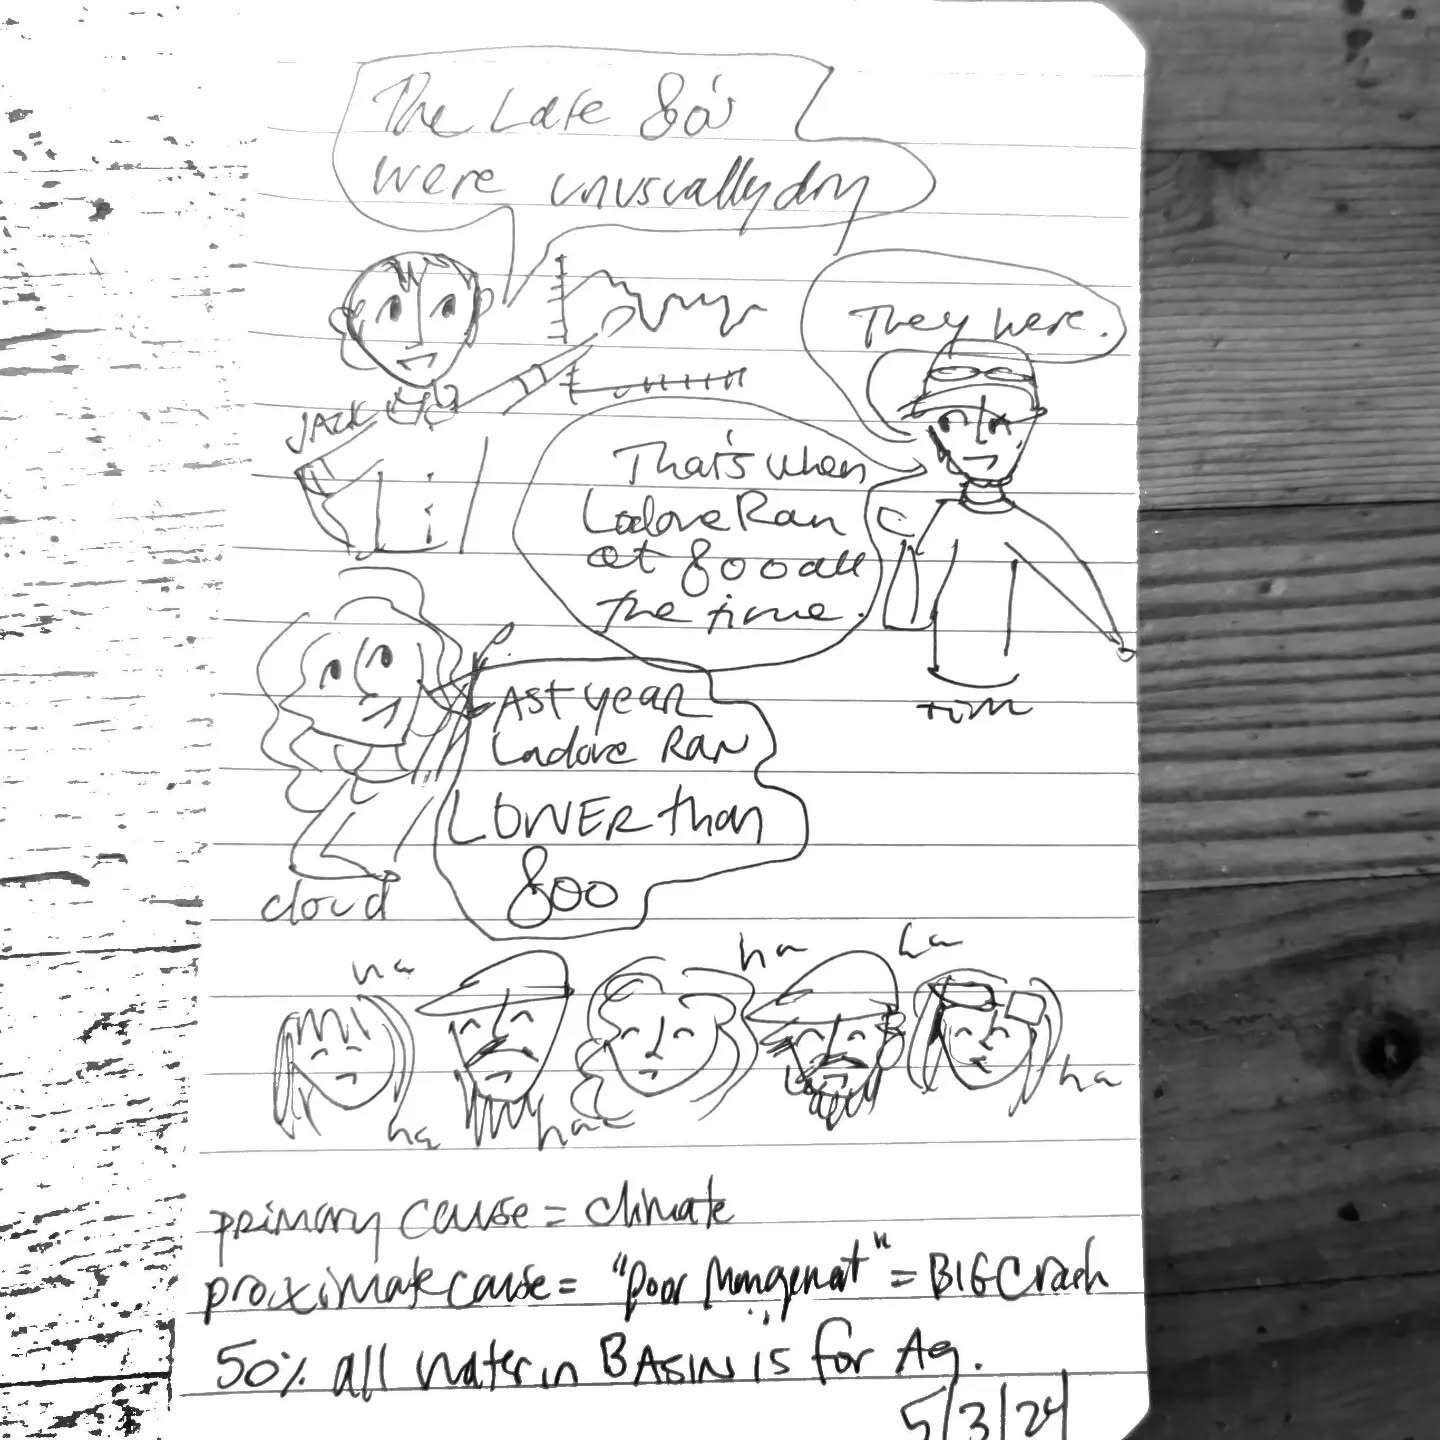 The Late 80's
were unusually dry
They were.
JACK
That's when
Ladore Ran
at 800 all
the time.
Tim
Last year
Ladore Ran
LOWER than
800
cloud
ha
ha
ha
ha
ha
ha
primary cause = climate
proximate cause = "Poor Mangemat" = BIG Crash
50% all water in BASIN is for Ag.
5/3/24